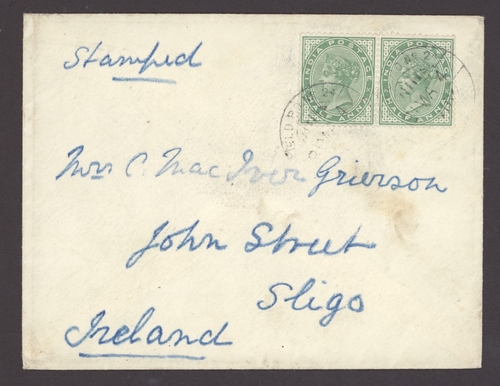 Stamped
INDIA POSTAGE INDIA POSTAGE
HALF ANNA HALF ANNA
Mrs C. Mac Iver Grierson
John Street
Sligo
Ireland